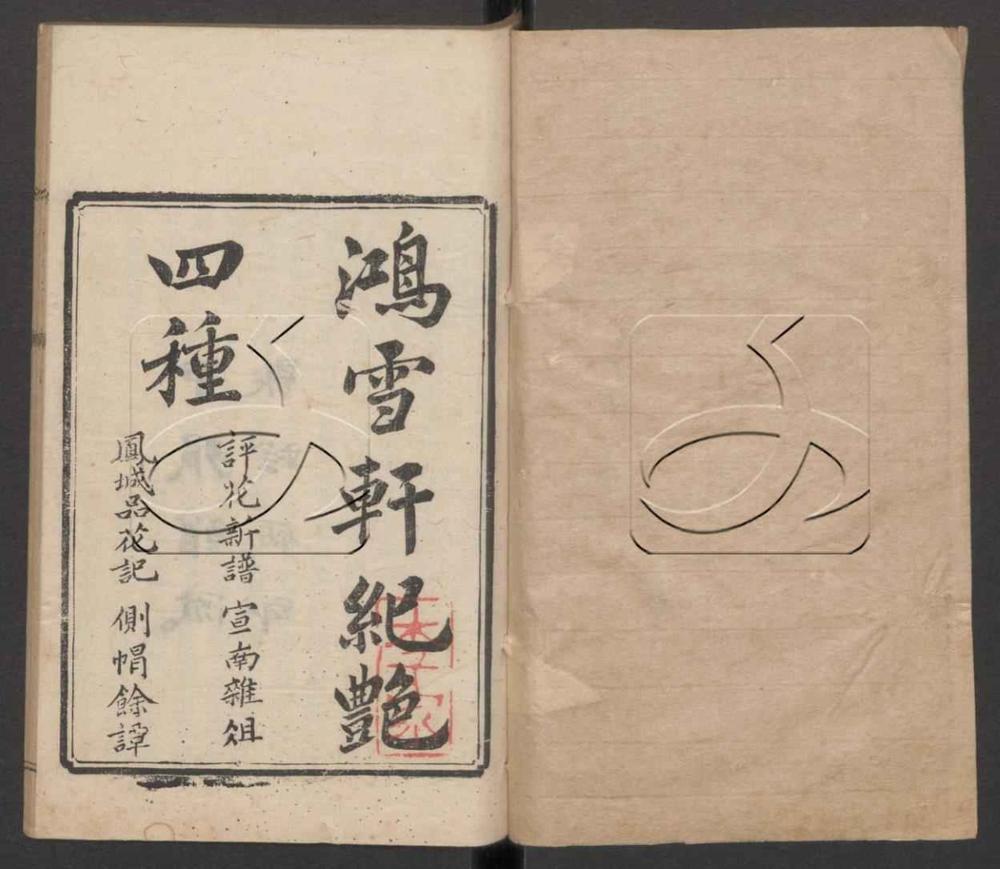 鴻雪軒紀艶
四種
評花新譜 宣南雜俎
鳳城品花記 側帽餘譚